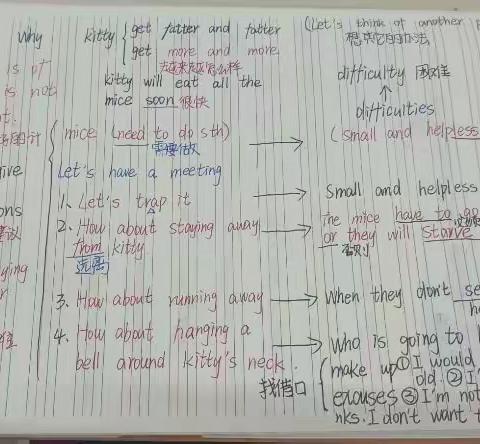 why
is pt
is not
t.
的计
give
ons
建议
ying
r
kitty
get fatter and fatter
get more and more
越来越怎么样
kitty will eat all the
mice soon 很快
mice (need to do sth)
需要做
Let's have a meeting
1. Let's trap it
2. How about staying away
from kitty
远离
3. How about running away
4. How about hanging a
bell around kitty's neck.
(Let's think of another p
想其它的办法
difficulty 困难
difficulties
(small and helpless
Small and helpless
The mice have to go
or they will starve
否则
When they don't se
Who is going to
找借口
make up ① I would
old. ② I'
excuses ③ I'm not
nks. I don't want t